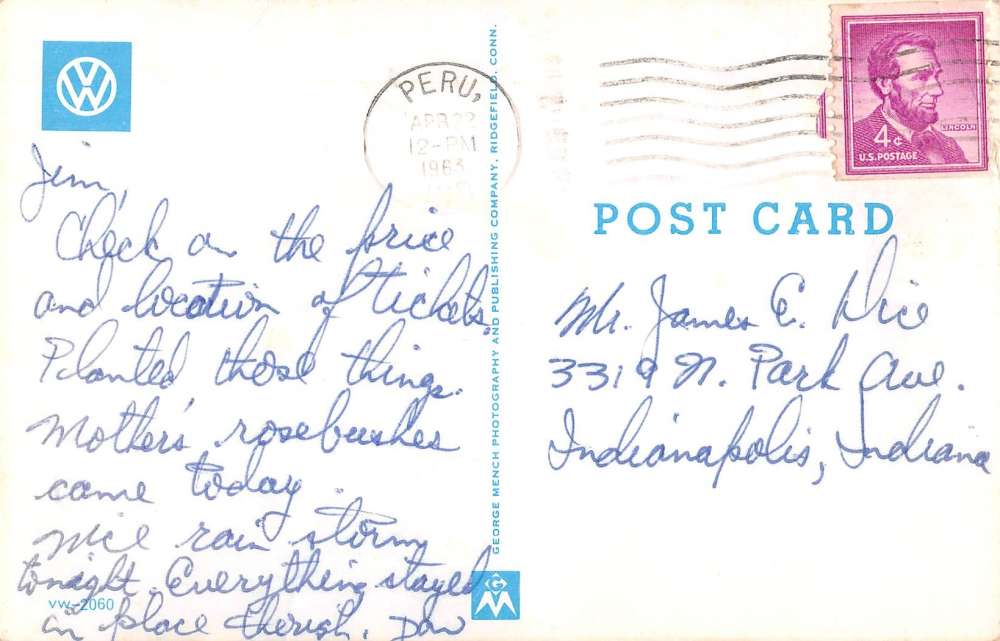 PERU,
APR 22
12-PM
1963
IND
4¢
LINCOLN
U.S. POSTAGE
POST CARD
Jim,
Check on the price
and location of tickets.
Planted those things.
Mother's rosebushes
came today.
Nice rain storm
tonight. Everything stayed
in place
VW-2060
GEORGE MENCH PHOTOGRAPHY AND PUBLISHING COMPANY, RIDGEFIELD, CONN.
GM
Mr. James E. Dice
3319 N. Park Ave.
Indianapolis, Indiana